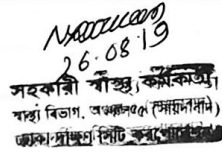 26.08.19
সহকারী স্বাস্থ্য কর্মকর্তা
স্বাস্থ্য বিভাগ, অঞ্চল-৫ (সায়েদাবাদ)
ঢাকা দক্ষিণ সিটি কর্পোরেশন